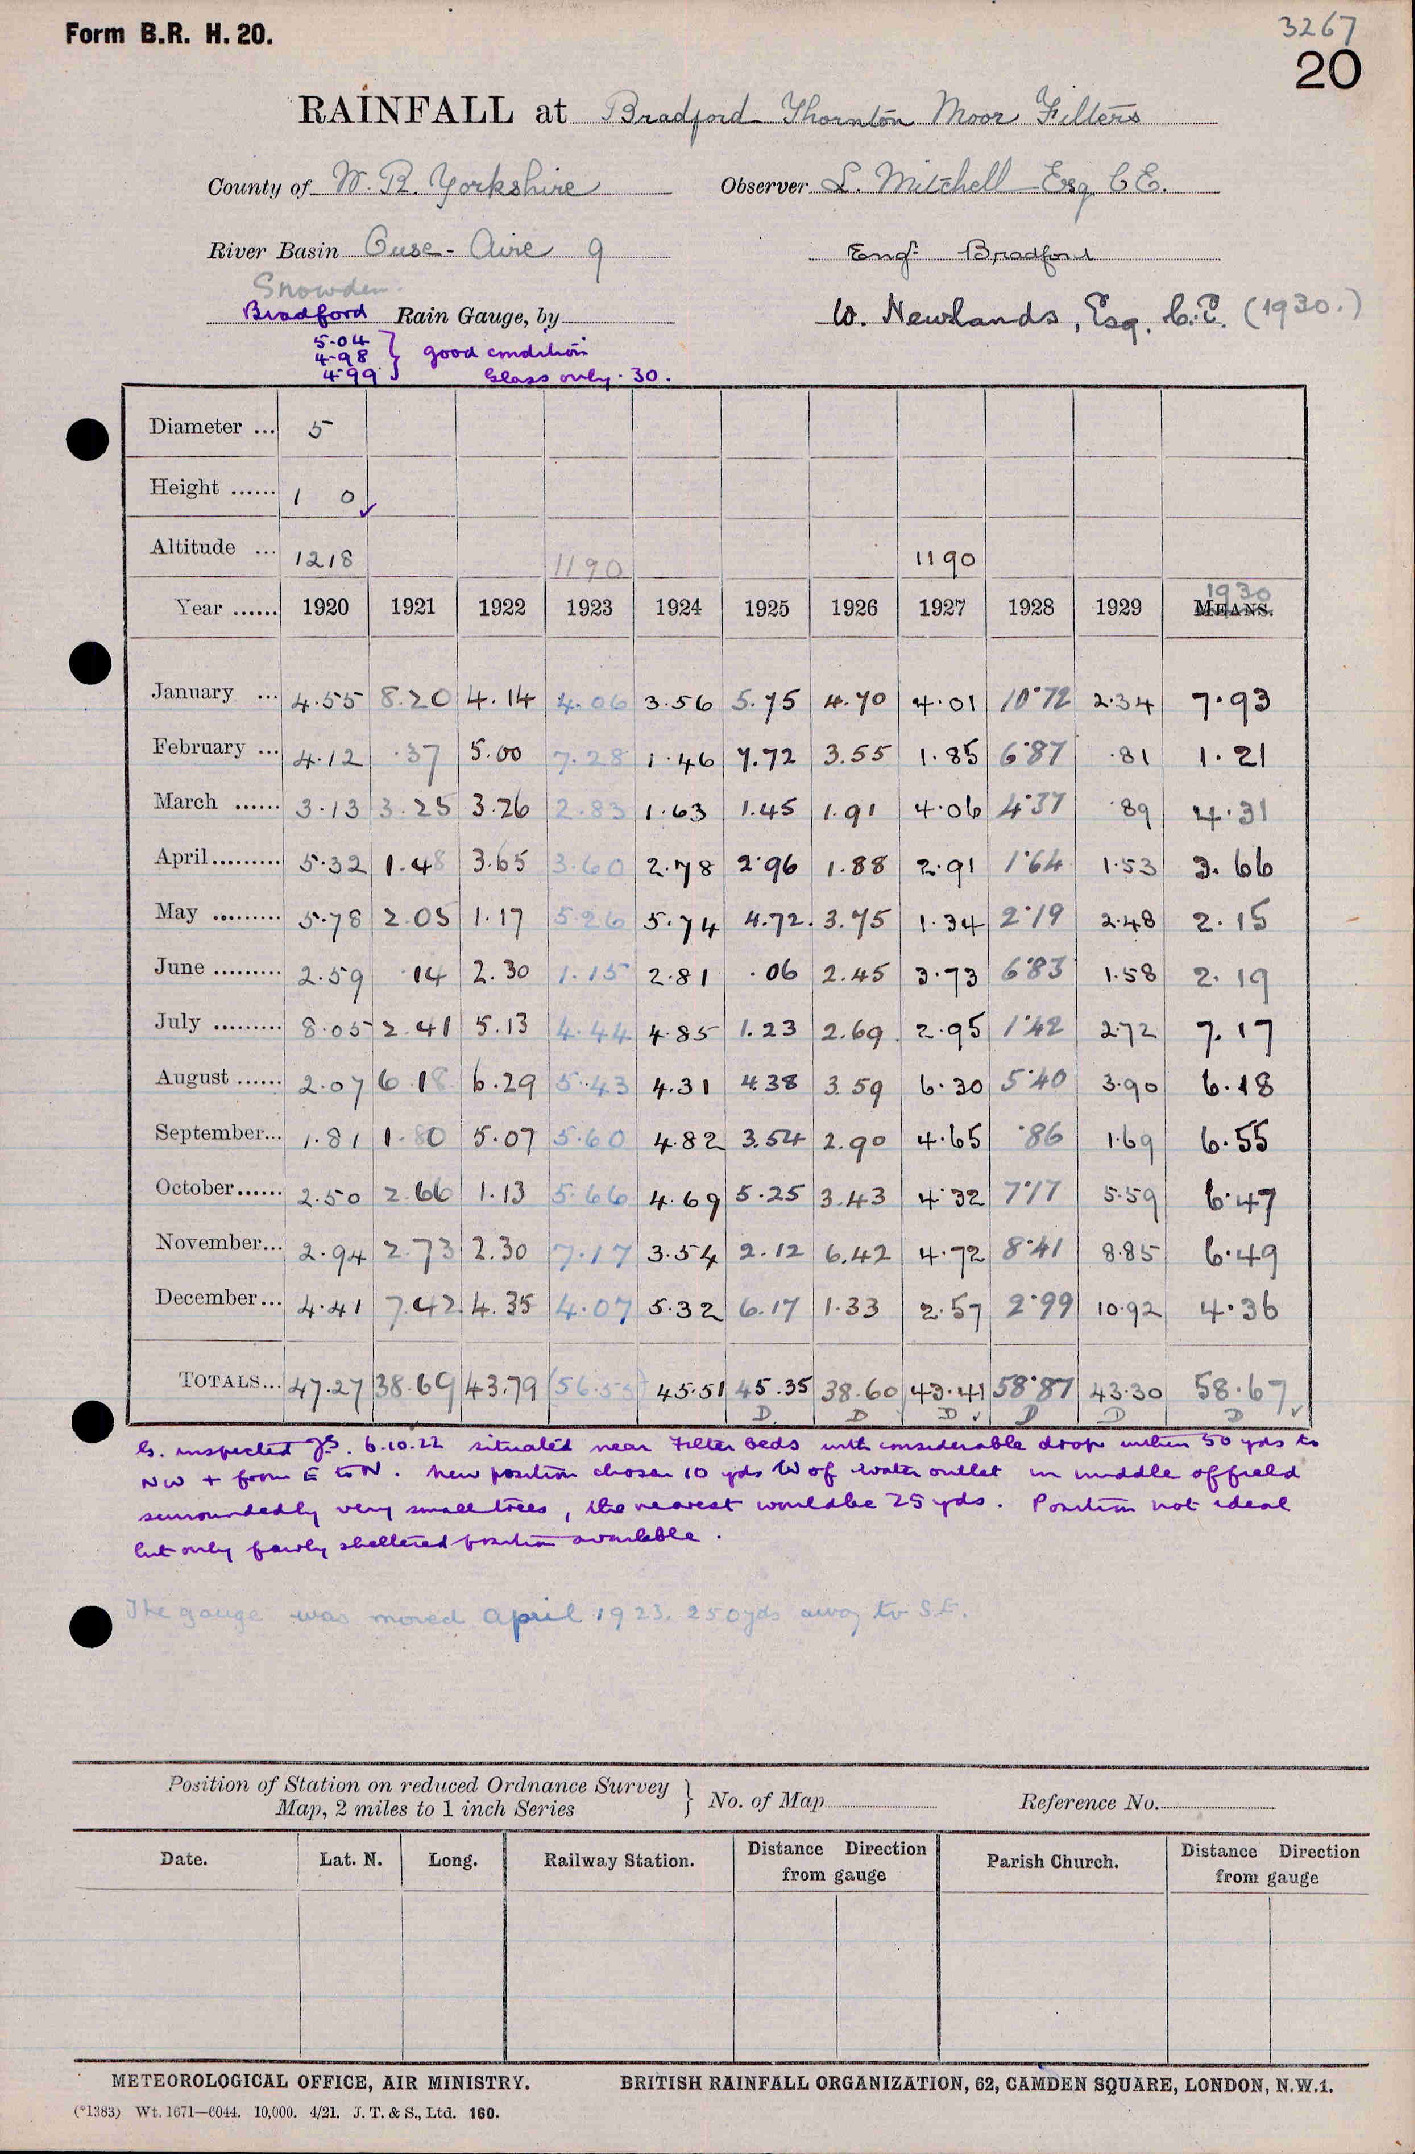 Form B.R. H. 20.
3267
20
RAINFALL at Bradford Thornton Moor Filters
County of W. R. Yorkshire Observer L. Mitchell Esq C.E.
River Basin Ouse - Aire 9 Engr. Bradford
Snowden
Bradford Rain Gauge, by W. Newlands, Esq. C.E. (1930.)
5.04
4.98 } good condition
4.99 Glass only .30.
Diameter ... 5
Height ...... 1 0 ✓
Altitude ... 1218 1190 1190
Year ...... 1920 1921 1922 1923 1924 1925 1926 1927 1928 1929 MEANS. 1930
January ... 4.55 8.20 4.14 4.06 3.56 5.75 4.70 4.01 10.72 2.34 7.93
February ... 4.12 .37 5.00 7.28 1.46 7.72 3.55 1.85 6.87 .81 1.21
March ...... 3.13 3.25 3.26 2.83 1.63 1.45 1.91 4.06 4.37 .89 4.31
April......... 5.32 1.48 3.65 3.60 2.78 2.96 1.88 2.91 1.64 1.53 3.66
May ......... 5.78 2.05 1.17 5.26 5.74 4.72 3.75 1.34 2.19 2.48 2.15
June ......... 2.59 .14 2.30 1.15 2.81 .06 2.45 3.73 6.83 1.58 2.19
July ......... 8.05 2.41 5.13 4.44 4.85 1.23 2.69 2.95 1.42 2.72 7.17
August ...... 2.07 6.18 6.29 5.43 4.31 4.38 3.59 6.30 5.40 3.90 6.18
September... 1.81 1.80 5.07 5.60 4.82 3.54 2.90 4.65 .86 1.69 6.55
October...... 2.50 2.66 1.13 5.66 4.69 5.25 3.43 4.32 7.17 5.59 6.47
November... 2.94 2.73 2.30 7.17 3.54 2.12 6.42 4.72 8.41 8.85 6.49
December... 4.41 7.42 4.35 4.07 5.32 6.17 1.33 2.57 2.99 10.92 4.36
TOTALS... 47.27 38.69 43.79 (56.55) 45.51 45.35 38.60 43.41 58.87 43.30 58.67
D D D ✓ D D D ✓
G. inspected 6.10.22 situated near Filter beds with considerable drop within 50 yds to
NW + from E to N. New position chosen 10 yds W of water outlet in middle of field
surrounded by very small trees, the nearest would be 25 yds. Position not ideal
but only fairly sheltered position available.
The gauge was moved April 1923. 250 yds away to S.E.
Position of Station on reduced Ordnance Survey
Map, 2 miles to 1 inch Series } No. of Map Reference No.
Date. Lat. N. Long. Railway Station. Distance Direction from gauge Parish Church. Distance Direction from gauge
METEOROLOGICAL OFFICE, AIR MINISTRY. BRITISH RAINFALL ORGANIZATION, 62, CAMDEN SQUARE, LONDON, N.W.1.
(*1383) Wt. 1671—6044. 10,000. 4/21. J. T. & S., Ltd. 160.